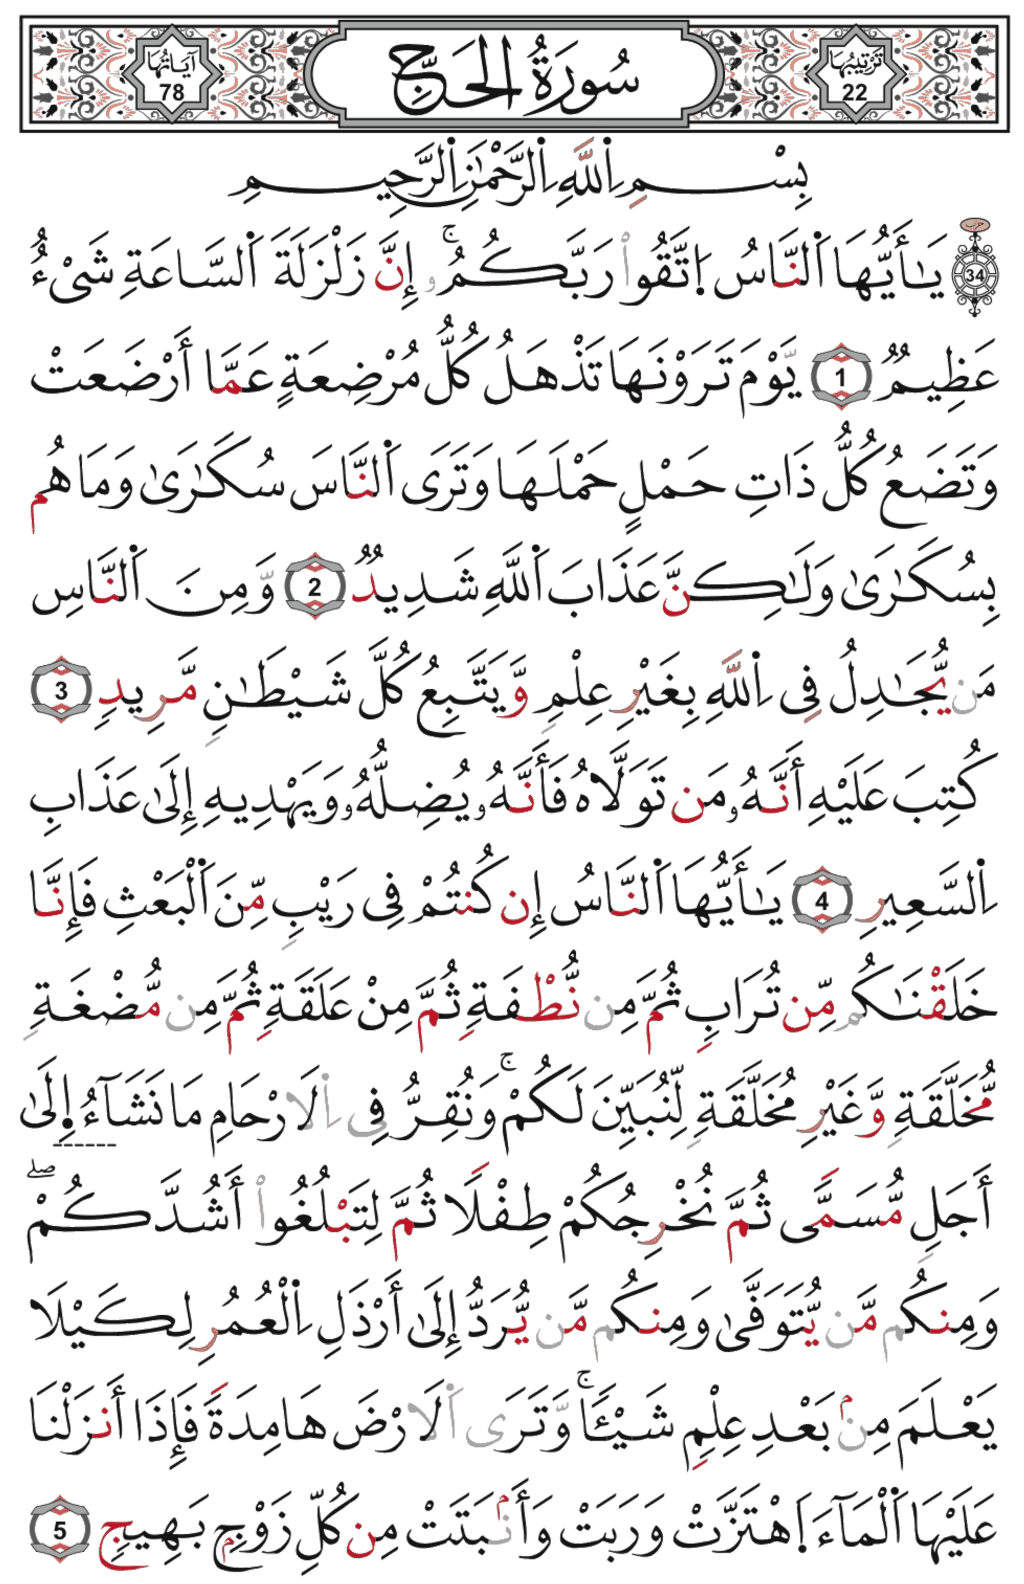 تَرْتِيبُهَا 22 سُورَةُ الحَجِّ آيَاتُهَا 78
بِسْمِ اِ۬للَّهِ اِ۬لرَّحْمَٰنِ اِ۬لرَّحِيمِ
حزب 34 يَٰأَيُّهَا اَ۬لنَّاسُ اُ۪تَّقُوا۟ رَبَّكُمُۥٓۚ إِنَّ زَلْزَلَةَ اَ۬لسَّاعَةِ شَيْءٌ
عَظِيمٌ 1 يَّوْمَ تَرَوْنَهَا تَذْهَلُ كُلُّ مُرْضِعَةٍ عَمَّا أَرْضَعَتْ
وَتَضَعُ كُلُّ ذَاتِ حَمْلٍ حَمْلَهَا وَتَرَى اَ۬لنَّاسَ سُكَٰرَىٰ وَمَا هُم
بِسُكَٰرَىٰ وَلَٰكِنَّ عَذَابَ اَ۬للَّهِ شَدِيدٌ 2 وَّمِنَ اَ۬لنَّاسِ
مَن يُّجَٰدِلُ فِى اِ۬للَّهِ بِغَيْرِ عِلْمٍ وَّيَتَّبِعُ كُلَّ شَيْطَٰنٍ مَّرِيدٍ 3
كُتِبَ عَلَيْهِ أَنَّهُۥ مَن تَوَلَّاهُ فَأَنَّهُۥ يُضِلُّهُۥ وَيَهْدِيهِ إِلَىٰ عَذَابِ
اِ۬لسَّعِيرِ 4 يَٰأَيُّهَا اَ۬لنَّاسُ إِن كُنتُمْ فِى رَيْبٍ مِّنَ اَ۬لْبَعْثِ فَإِنَّا
خَلَقْنَٰكُم مِّن تُرَابٍ ثُمَّ مِن نُّطْفَةٍ ثُمَّ مِنْ عَلَقَةٍ ثُمَّ مِن مُّضْغَةٍ
مُّخَلَّقَةٍ وَّغَيْرِ مُخَلَّقَةٍ لِّنُبَيِّنَ لَكُمْۚ وَنُقِرُّ فِى اِ۬لَارْحَامِ مَا نَشَآءُ اِ۪لَىٰ
أَجَلٍ مُّسَمًّى ثُمَّ نُخْرِجُكُمْ طِفْلًا ثُمَّ لِتَبْلُغُوا۟ أَشُدَّكُمْۖ
وَمِنكُم مَّن يُّتَوَفَّىٰ وَمِنكُم مَّن يُّرَدُّ إِلَىٰ أَرْذَلِ اِ۬لْعُمُرِ لِكَيْلَا
يَعْلَمَ مِنۢ بَعْدِ عِلْمٍ شَيْـًٔاۚ وَّتَرَى اَ۬لَارْضَ هَامِدَةً فَإِذَا أَنزَلْنَا
عَلَيْهَا اَ۬لْمَآءَ اَ۪هْتَزَّتْ وَرَبَتْ وَأَنۢبَتَتْ مِن كُلِّ زَوْجٍۭ بَهِيجٍ 5